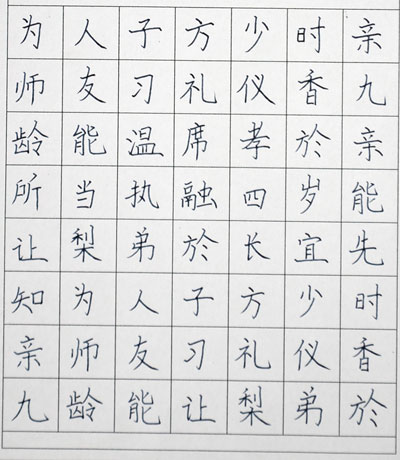 为人子方少时亲
师友习礼仪香九
龄能温席孝於亲
所当执融四岁能
让梨弟於长宜先
知为人子方少时
亲师友习礼仪香
九龄能让梨弟於